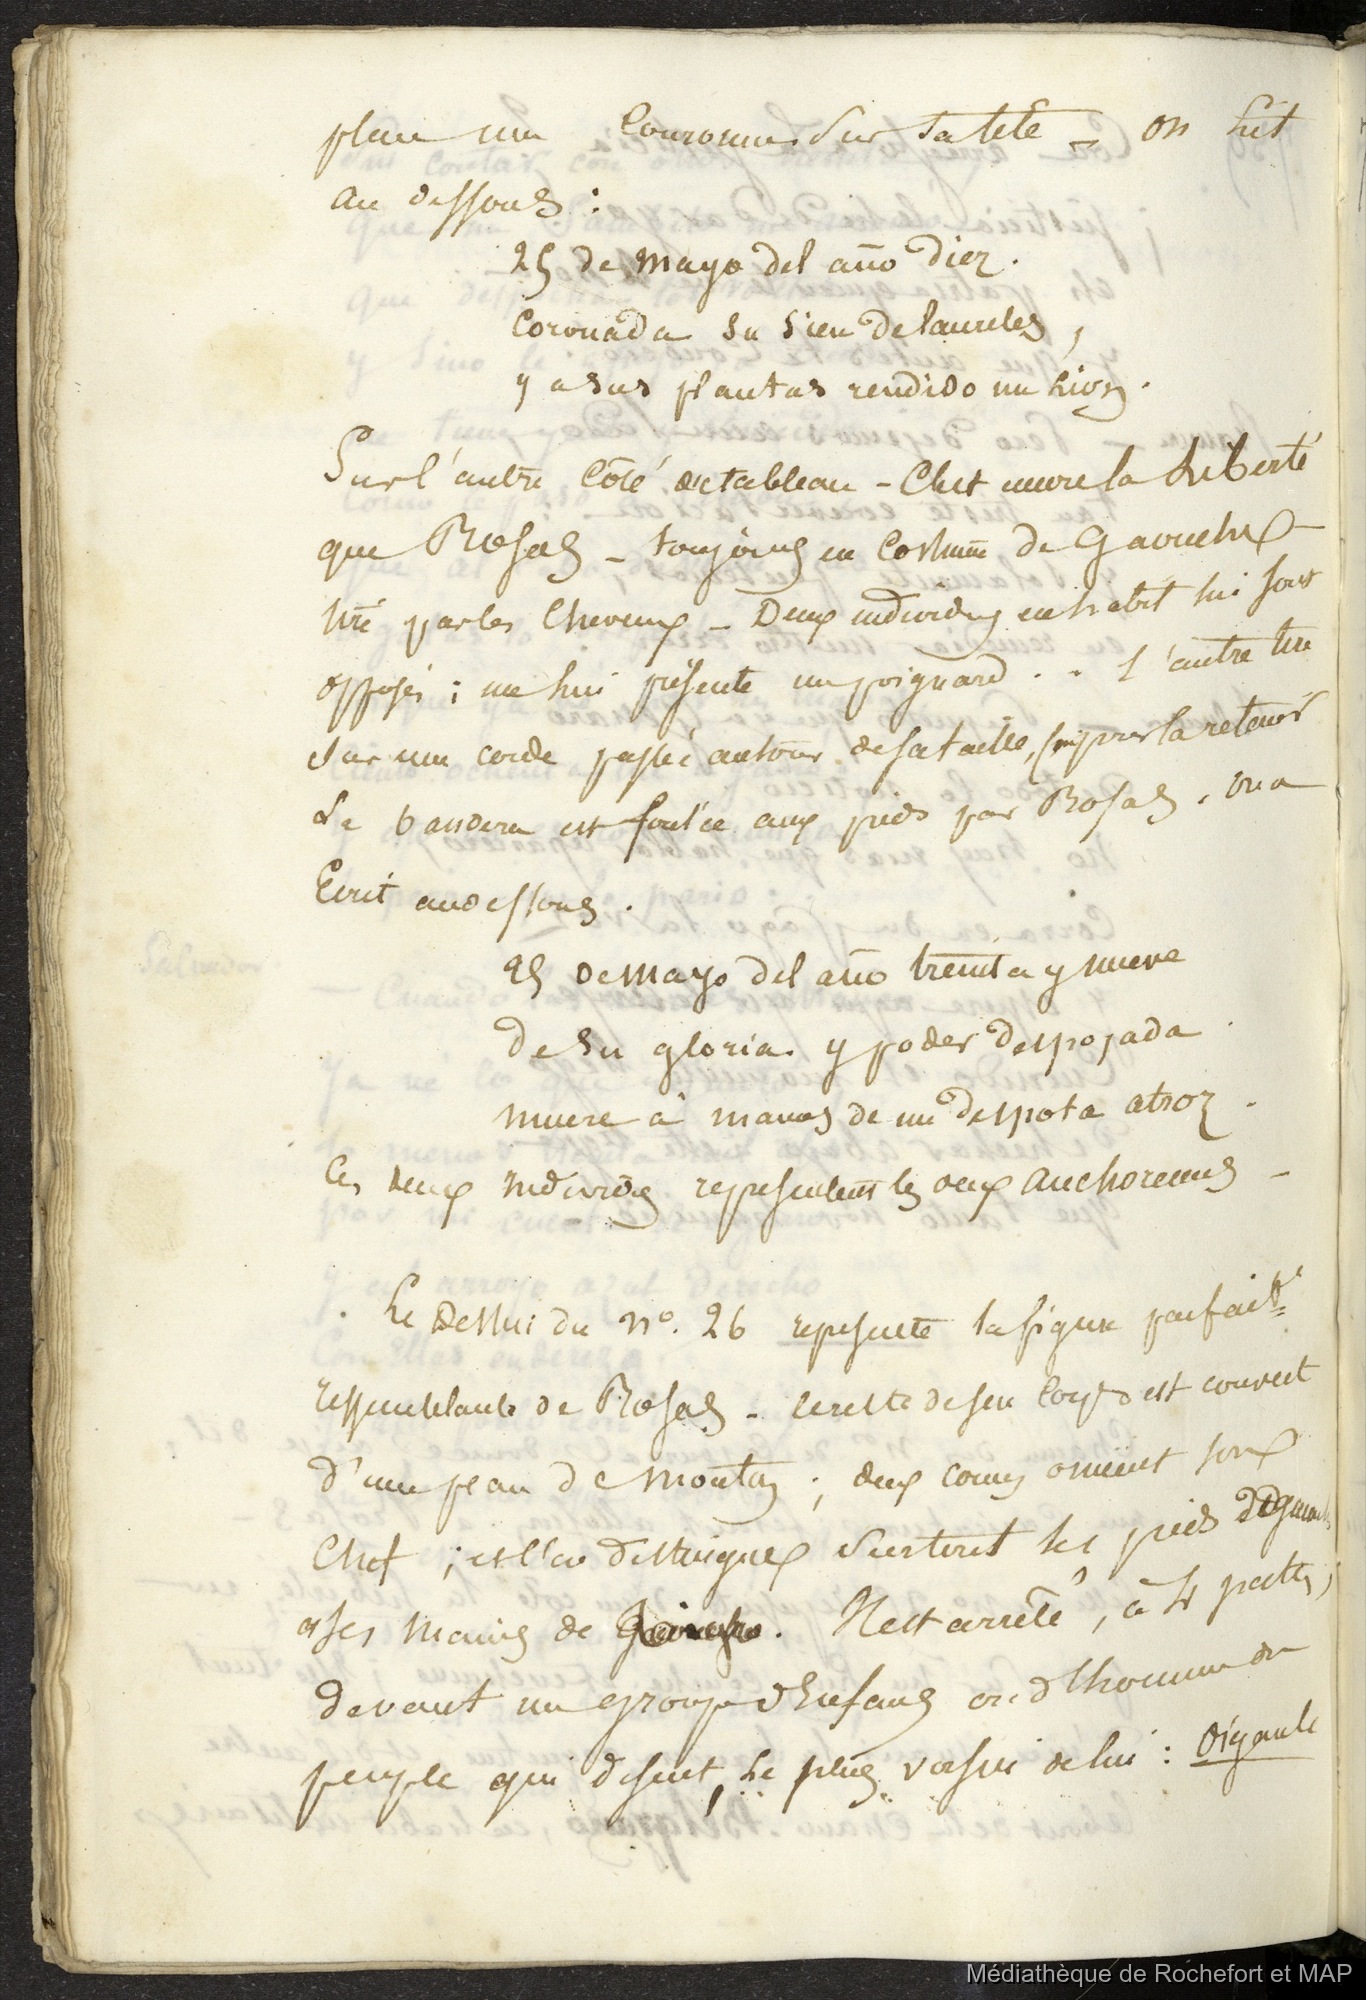 place une Couronne sur sa tête _ on lit
au dessous :
25 de Mayo del año Diez.
Coronada su sien de laureles,
y a sus plantas rendido un Lion.
Sur l'autre Côté du tableau - C'est encore la Liberté
que Rosas - toujours en Costume de Gaoucho -
tire par les Cheveux - Deux individus en habit lui sont
opposés ; un lui présente un poignard . . l'autre tire
sur une corde passée autour de sa taille, pour la retenir
La bandera est foulée aux pieds par Rosas . on a
Ecrit au dessous .
25 de Mayo del año treinta y nueve
de su gloria y poder despojada
muere à manos de un despota atroz .
Ces deux individus représentent les deux Anchorenas -
Le Dessin du N°. 26 représente la figure parfait.t
ressemblante de Rosas - le reste de son Corps est couvert
d'une peau de Mouton ; deux cornes ornent son
Chef ; et l'on distingue surtout les pieds
et ses mains de . Il est arrêté, à 4 pattes,
devant un groupe d'Enfans ou d'hommes du
peuple qui disent, le plus voisin de lui : Oigante
Médiathèque de Rochefort et MAP